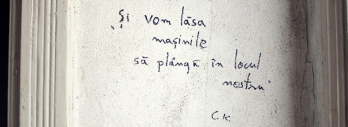 Și vom lăsa
mașinile
să plângă în locul
nostru
C.K.